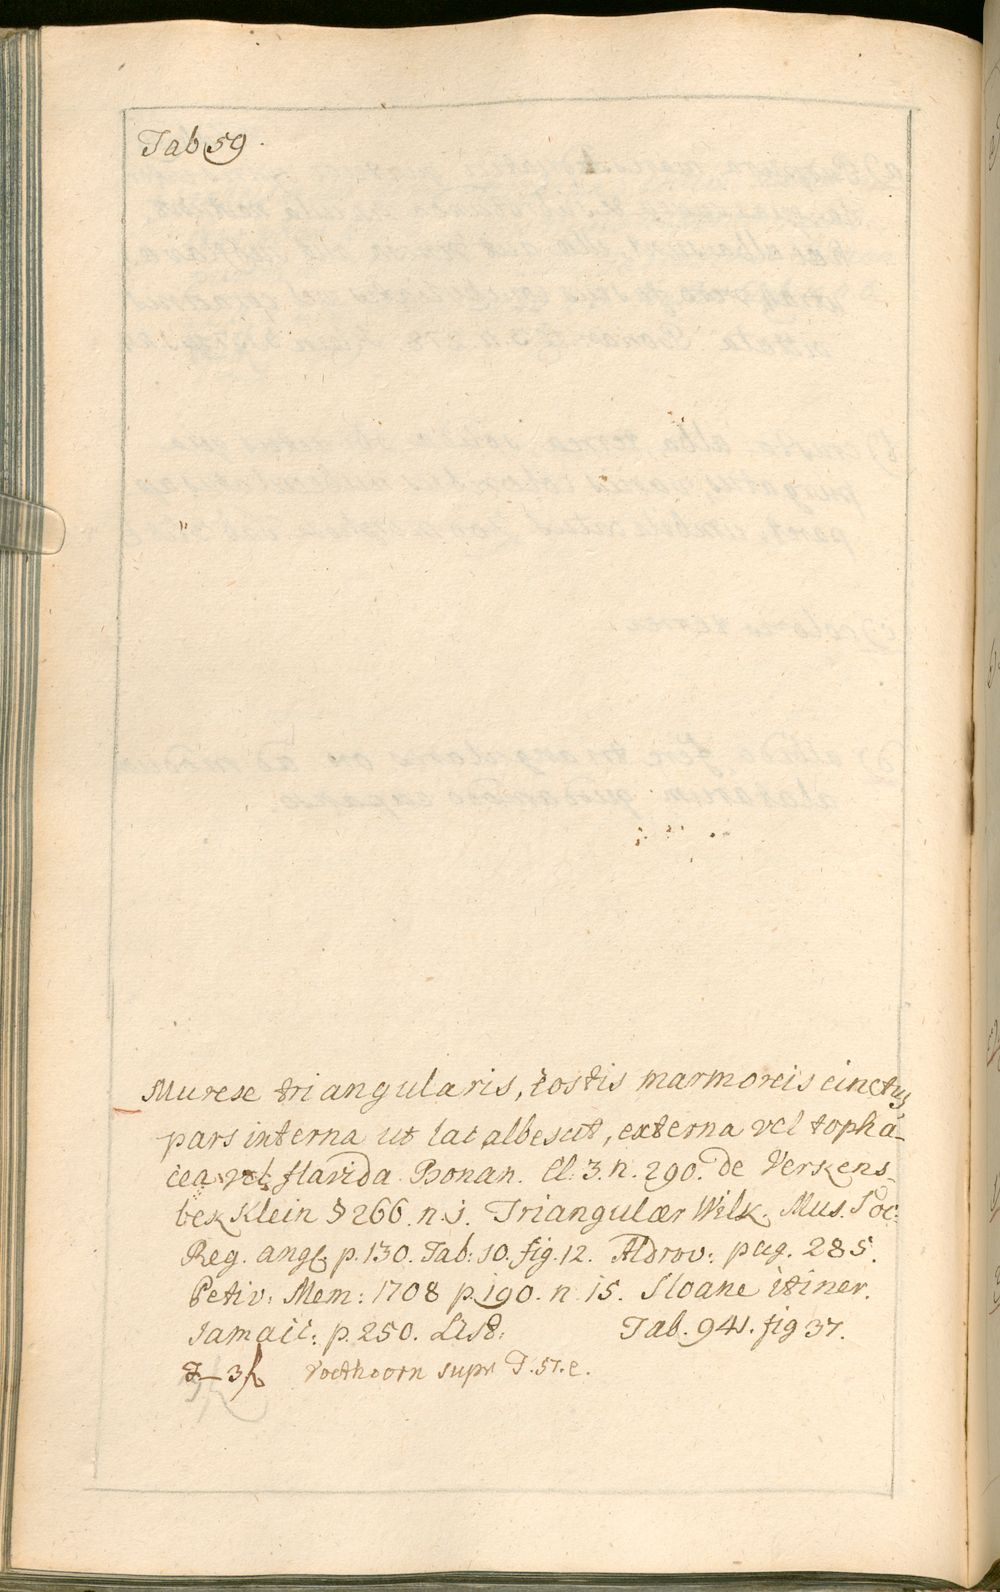 Tab 59.
Murex triangularis, costis marmoreis cinctus
pars interna ut lac albescit, externa vel topha-
cea vel flavida Bonan. Cl: 3. n. 290. de Verkens-
bek Klein § 266. n. j. Triangulær Wilk. Mus. Soc:
Reg. angl. p. 130. Tab: 10. fig. 12. Aldrov: pag. 285.
Petiv: Mem: 1708 p. 190. n. 15. Sloane itiner.
Jamaic: p. 250. List: Tab. 941. fig 37.
3 Voethoorn supr T. 57. e.